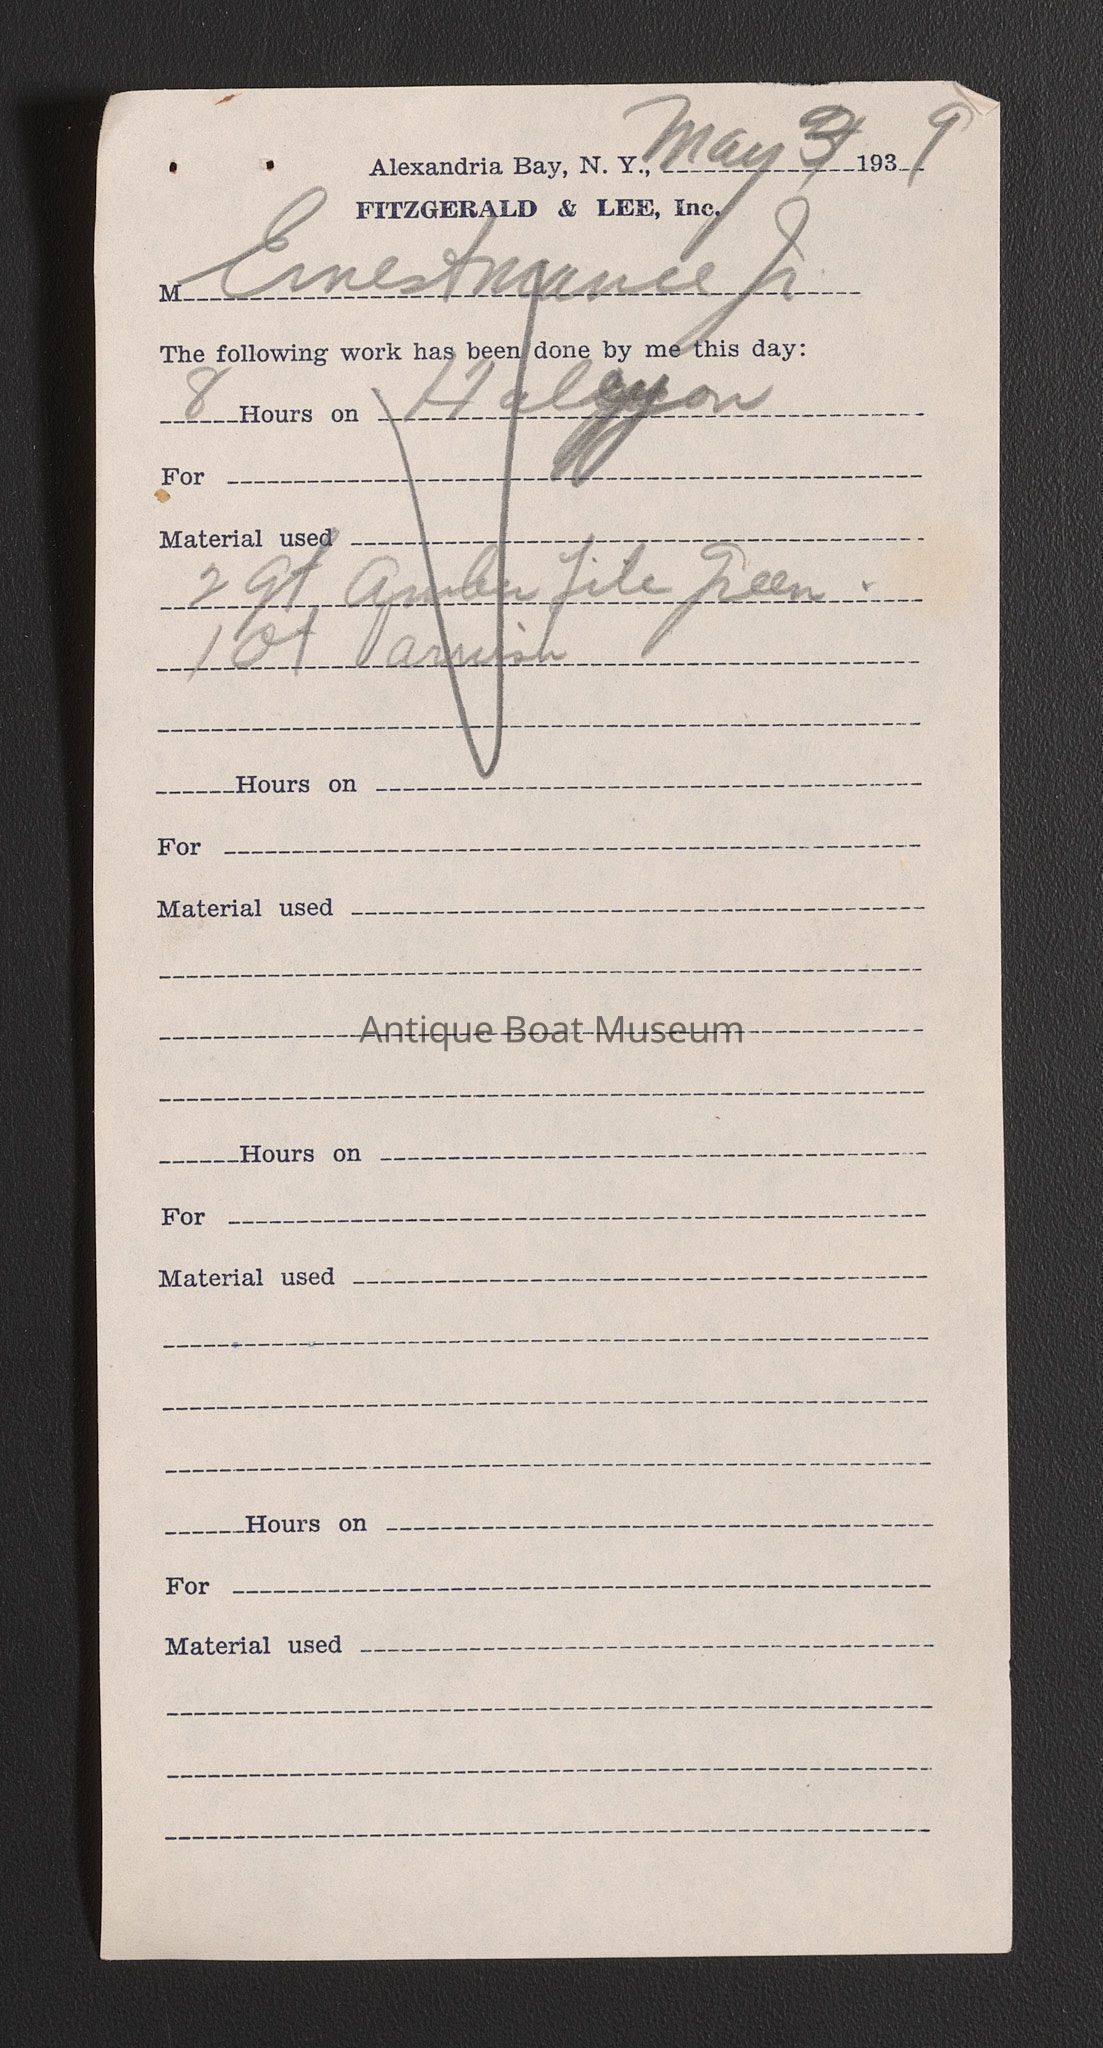 Alexandria Bay, N. Y., May 193 9
FITZGERALD & LEE, Inc.
M Ernest Mance Jr.
The following work has been done by me this day:
8 Hours on Halcyon
For
Material used
2 qt Amber Tile Green.
1 Qt Varnish
Hours on
For
Material used
Antique Boat Museum
Hours on
For
Material used
Hours on
For
Material used